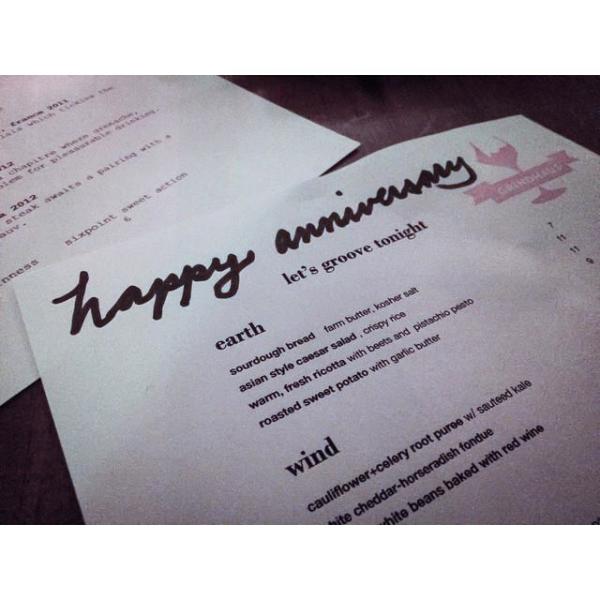 france 2011
which tickles the
2012
chapitre where grenache,
for pleasurable drinking.
2012
steak awaits a pairing with a
sixpoint sweet action
6
happy anniversary
GRINDHAUS
let's groove tonight
earth
sourdough bread farm butter, kosher salt 7
asian style caesar salad , crispy rice 11
warm, fresh ricotta with beets and pistachio pesto 11
roasted sweet potato with garlic butter 9
wind
cauliflower+celery root puree w/ sauteed kale
white cheddar-horseradish fondue
white beans baked with red wine